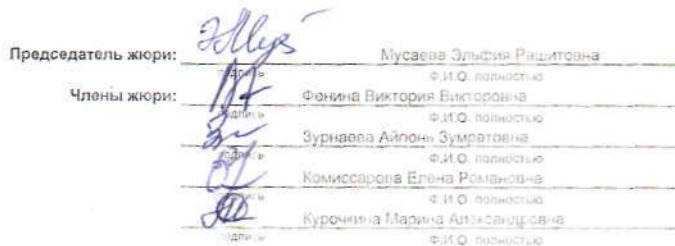 Председатель жюри: Мусаева Эльфия Рашитовна
подпись Ф.И.О. полностью
Члены жюри: Фенина Виктория Викторовна
подпись Ф.И.О. полностью
Зурнаева Айгюнь Зумратовна
подпись Ф.И.О. полностью
Комиссарова Елена Романовна
подпись Ф.И.О. полностью
Курочкина Марина Александровна
подпись Ф.И.О. полностью